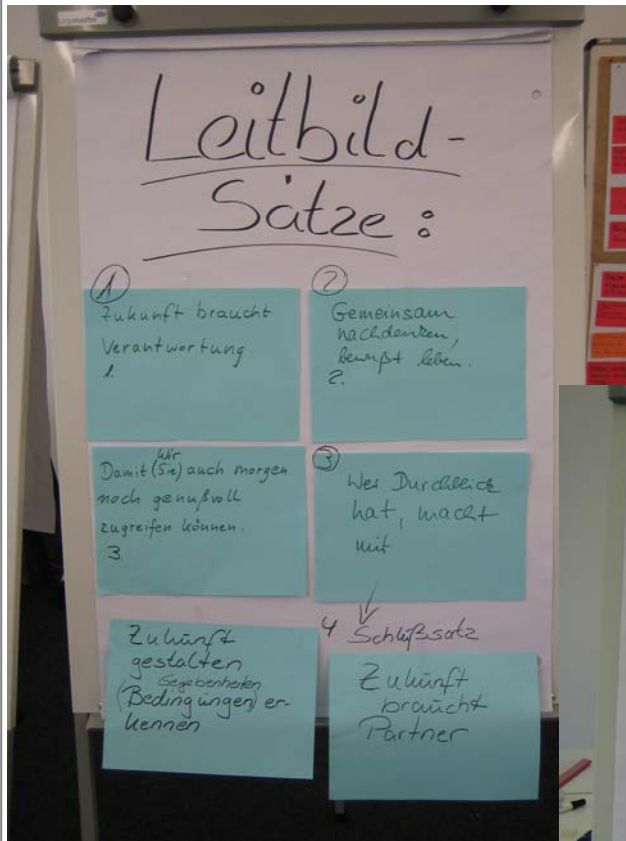 Leitbild-
Sätze:
1
Zukunft braucht
Verantwortung
1.
2
Gemeinsam
nachdenken,
bewußt leben.
2.
Wir
Damit (Sie) auch morgen
noch genußvoll
zugreifen können.
3
3
Wer Durchblick
hat, macht
mit
Zukunft
gestalten
Gegebenheiten
(Bedingungen) er-
kennen
4 Schlußsatz
Zukunft
braucht
Partner